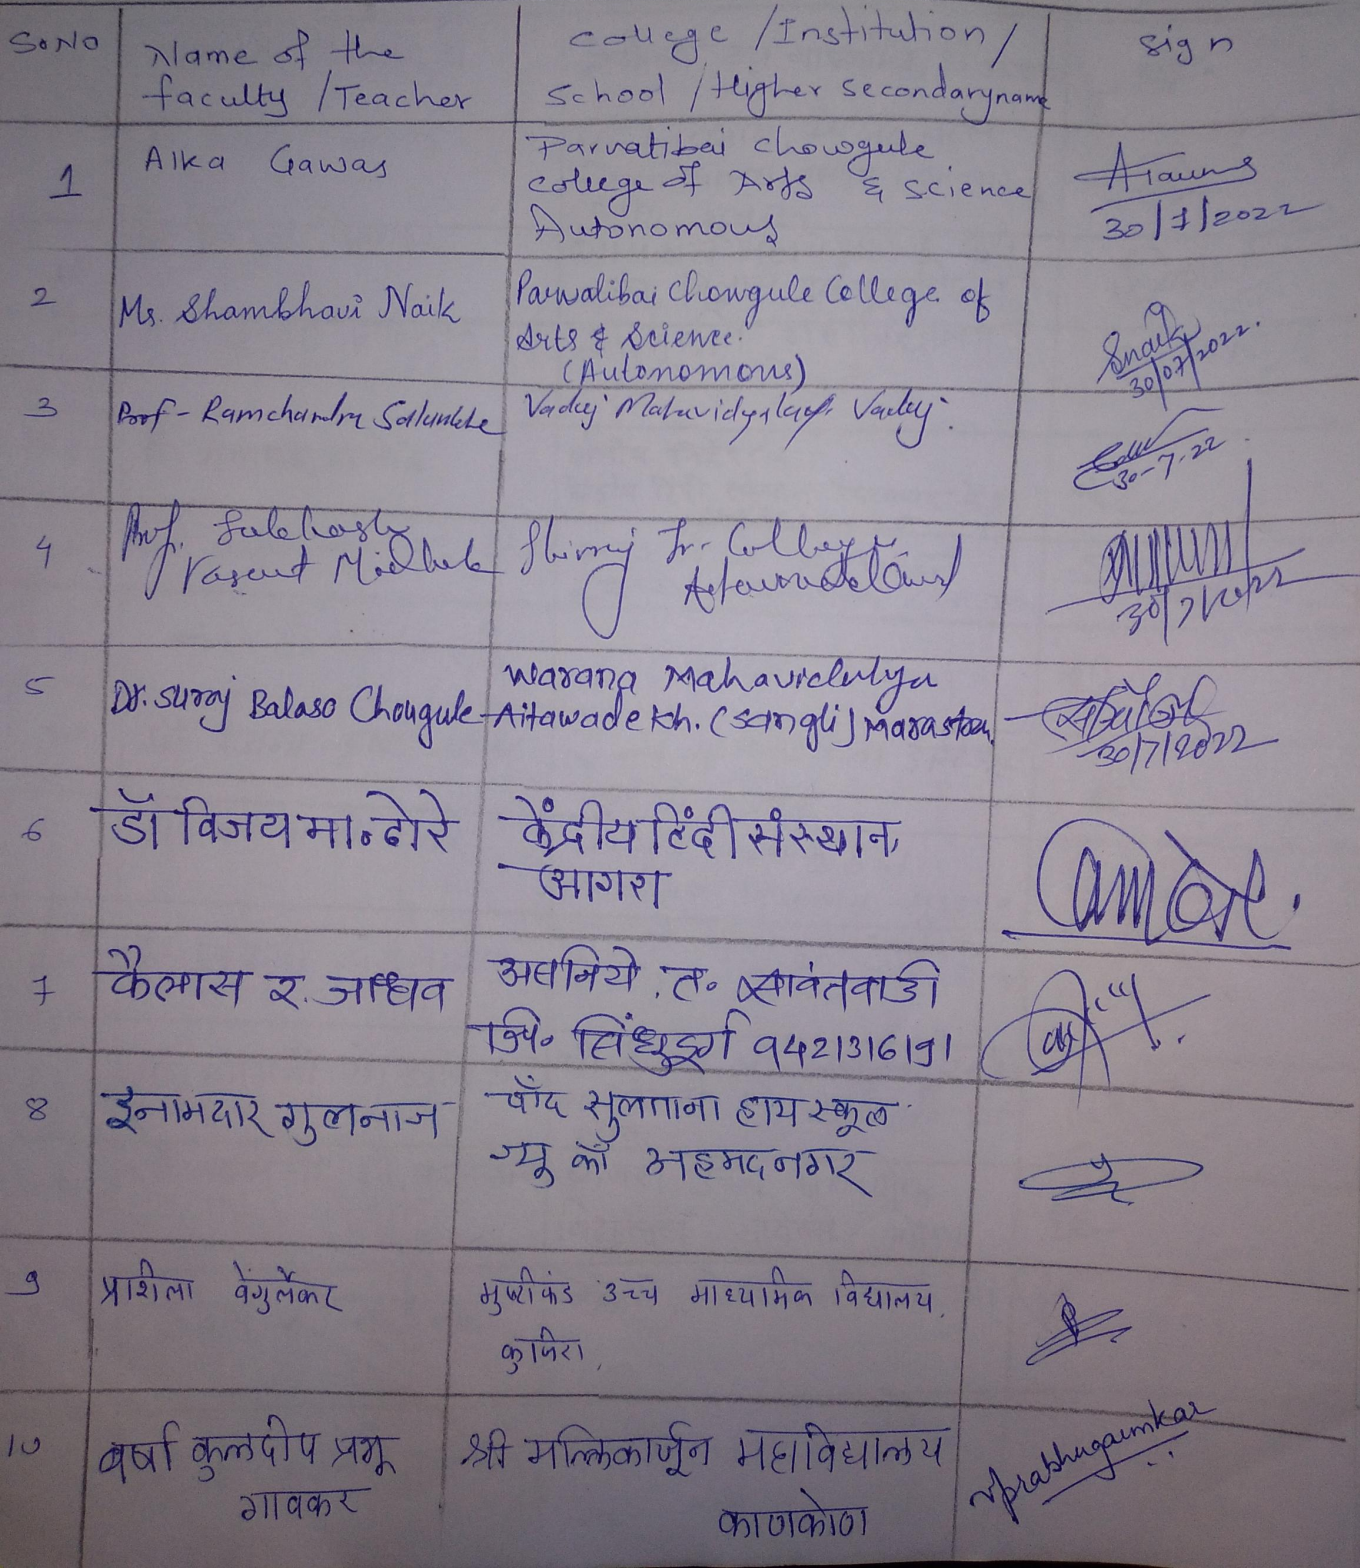 Sr.No
Name of the
faculty / Teacher
College / Institution /
School / Higher secondary name
Sign
1
Alka Gawas
Parvatibai Chowgule
College of Arts & Science
Autonomous
30/7/2022
2
Ms. Shambhavi Naik
Parvatibai Chowgule College of
Arts & Science.
(Autonomous)
Snaik
30/07/2022.
3
Prof - Ramchandra Salunkhe
30-7-22
4
Prof.
Vasant
Jr. College
30/7/2022
5
Dr. Suraj Balaso Chougule
Warana Mahavidulya
Aitawade kh. (Sangli)
30/7/2022
6
डॉ विजय मा. ढोरे
केंद्रीय हिंदी संस्थान,
आगरा
7
कैलास र. जाधव
ता. सावंतवाडी
जि. सिंधुदुर्ग ९421316191
8
इनामदार गुलनाज
चाँद सुलताना हायस्कूल
अहमदनगर
9
प्रशिला वेंगुर्लेकर
मुष्टीफंड उच्च माध्यमिक विद्यालय,
10
वर्षा कुलदीप प्रभू
गावकर
श्री मल्लिकार्जून महाविद्यालय
काणकोण
Vprabhugaunkar